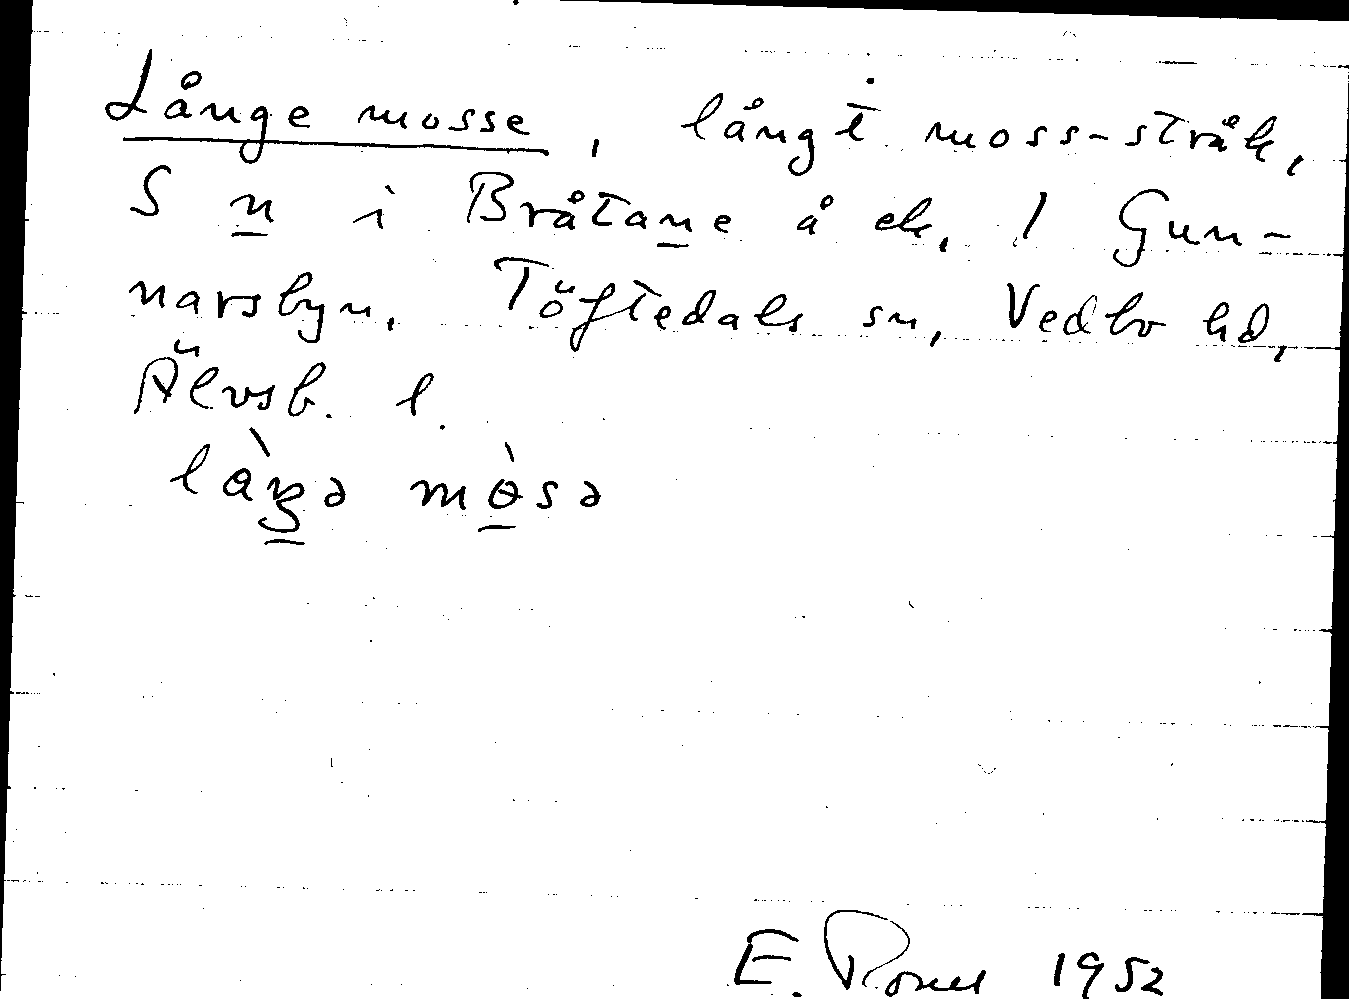 Långe mosse, långt moss-stråk,
S n i Bråtane å ek. 1 Gun-
narsbyn. Töftedals sn, Vedbo hd,
Älvsb. l.
làŋə mòsə
E. 1952